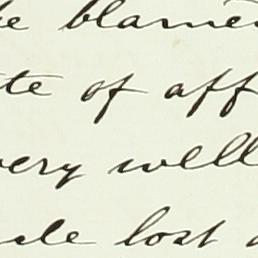 be blamed
te of aff
very well
de lost